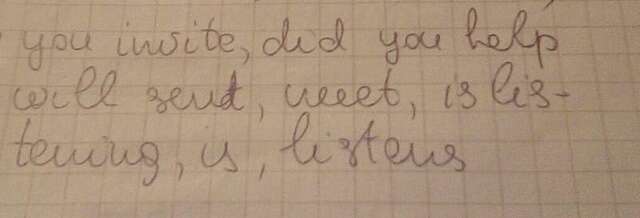 you invite, did you help
will send, meet, is lis-
tening, is, listens